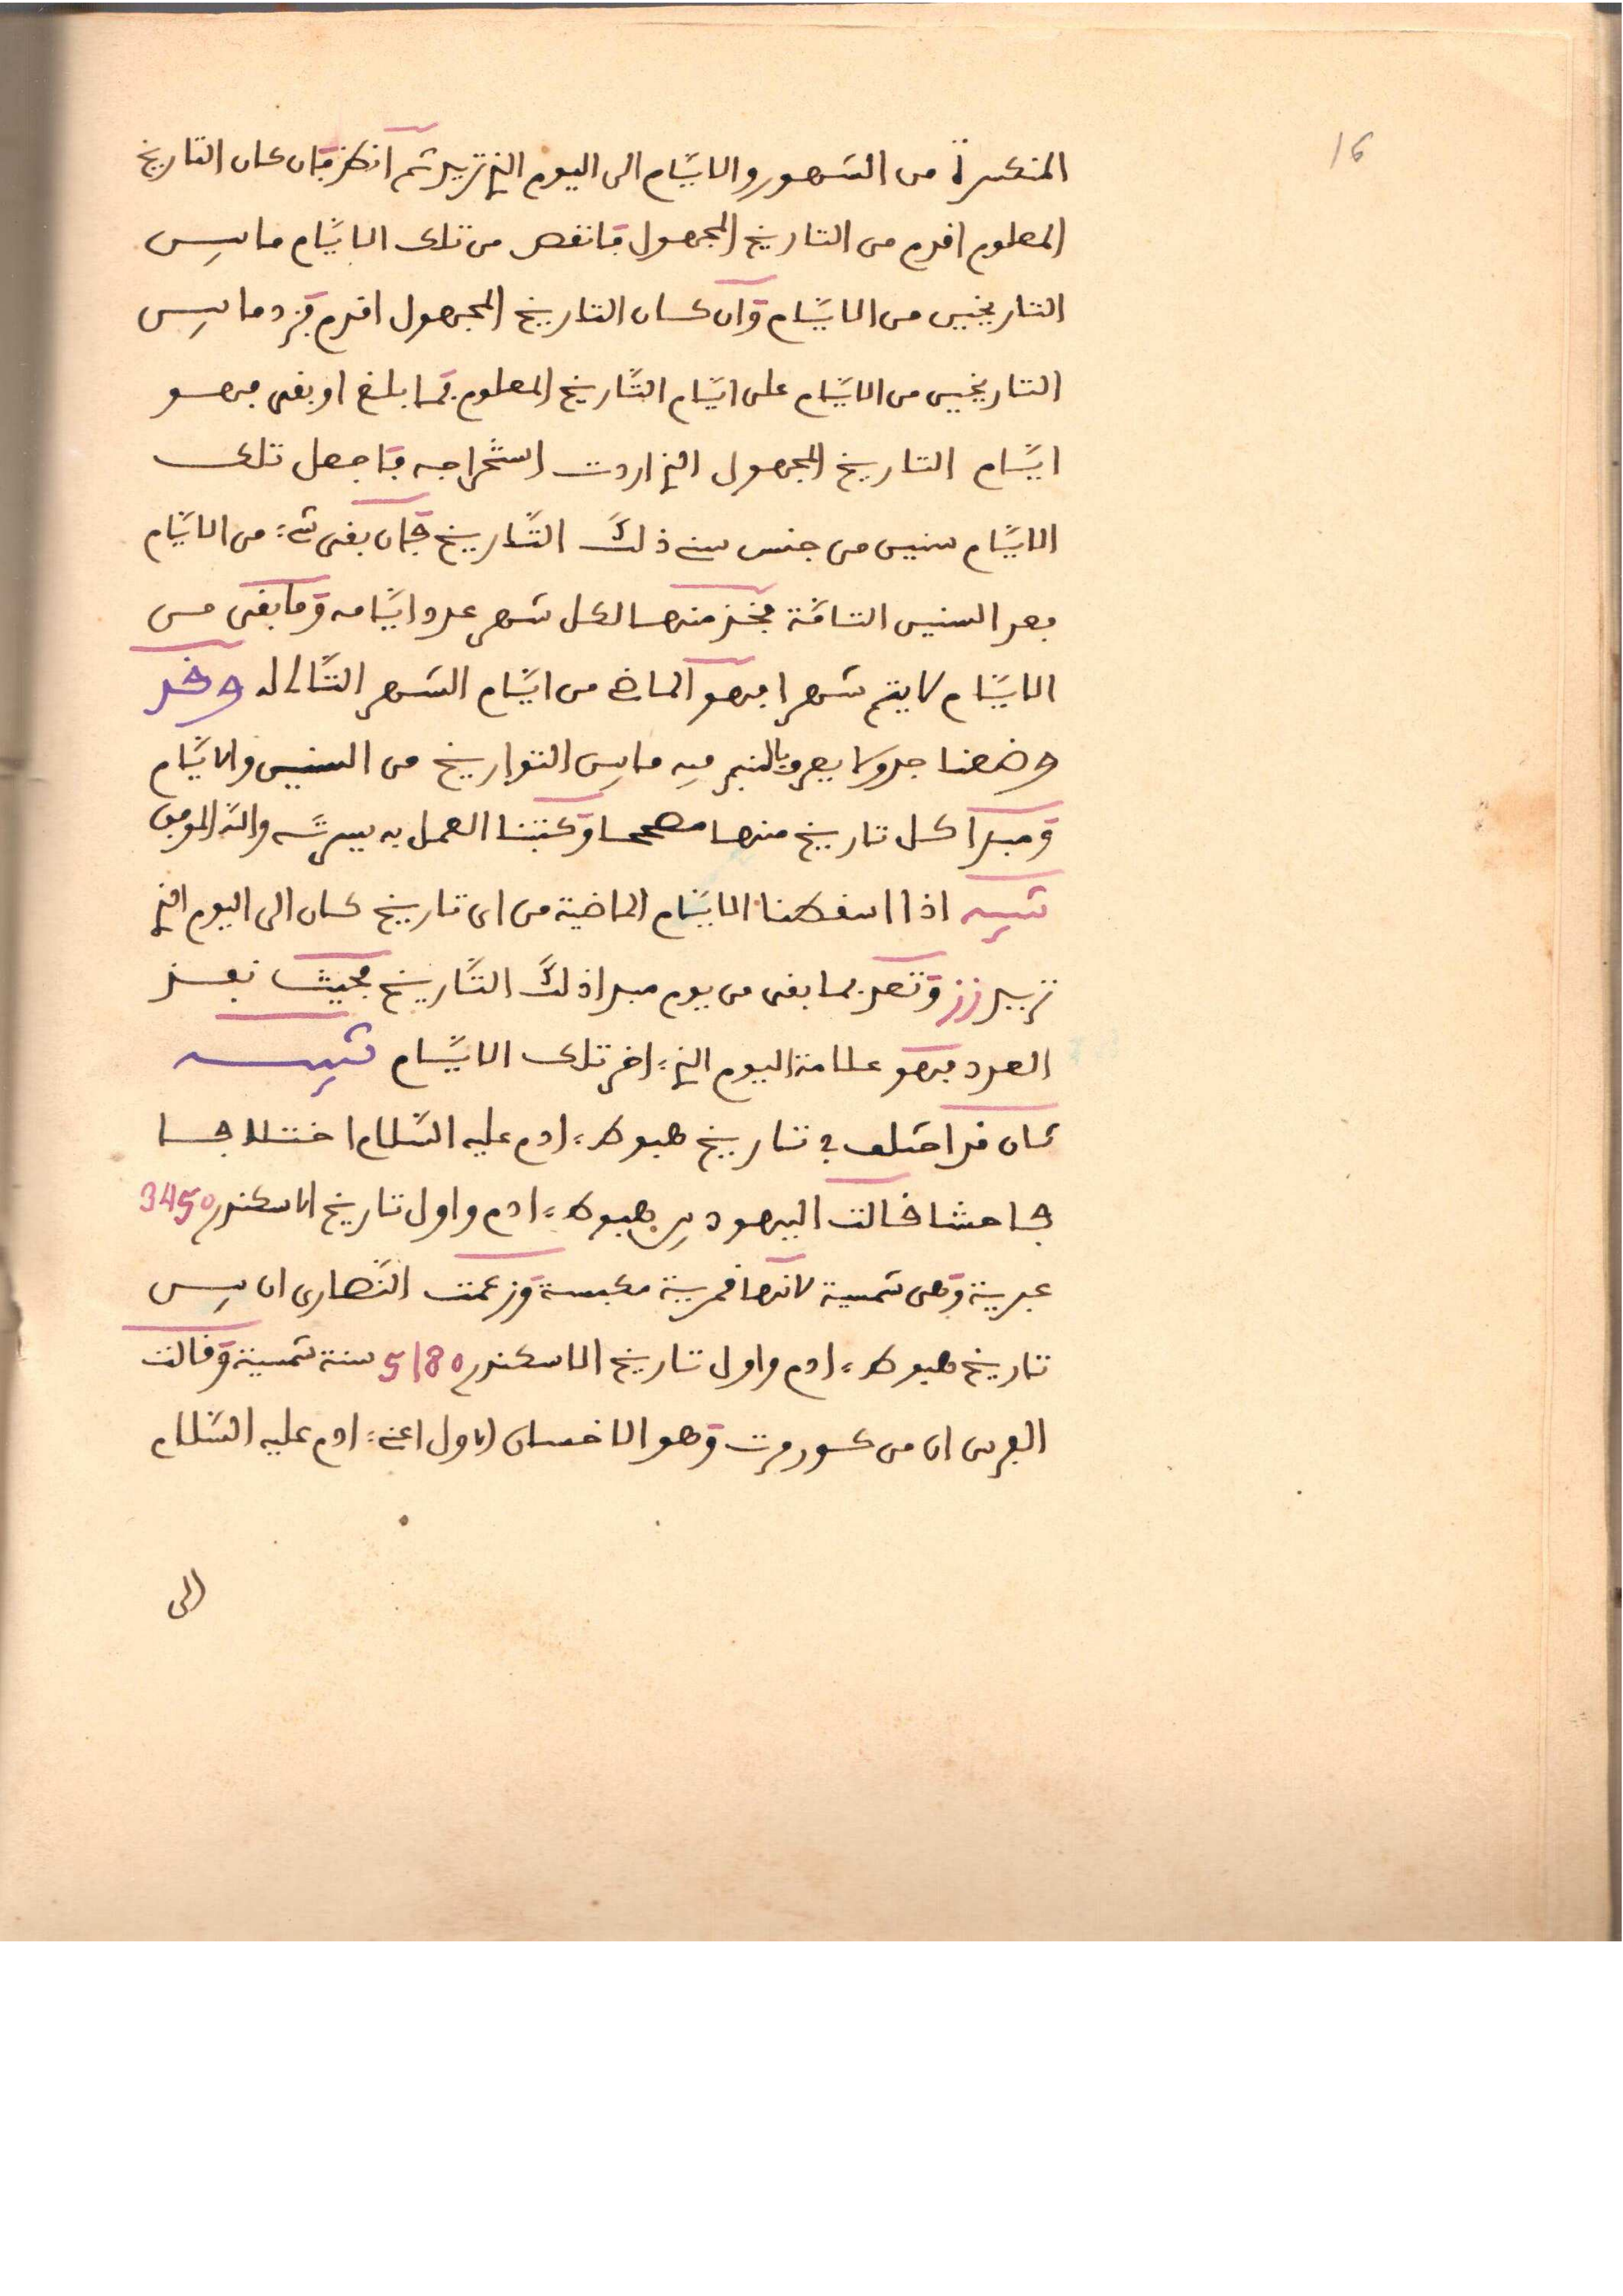 16
المنكسرة من الشهور والايام الى اليوم الذي تريد ثم انظر فان كان التاريخ
المعلوم اقدم من التاريخ المجهول فانقص من تلك الايام ما بين
التاريخين من الايام وان كان التاريخ المجهول اقدم فزد ما بين
التاريخين من الايام على ايام التاريخ المعلوم فما بلغ او بقى فهو
ايام التاريخ المجهول الذي اردت استخراجه فاجعل تلك
الايام سنين من جنس سني ذلك التاريخ فان بقى شيء من الايام
بعد السنين التامة فخذ منها لكل شهر عدد ايامه وما بقى من
الايام لا يتم شهرا فهو الماضي من ايام الشهر التالي له وقد
وضعنا جدولا يعرف بالنبر فيه ما بين التواريخ من السنين والايام
ومبدا كل تاريخ منها مصححا وكتبنا العمل به بين يديه والله الموفق
تنبيه اذا اسقطنا الايام الماضية من اى تاريخ كان الى اليوم الذي
نريد زز ونعد بما بقى من يوم مبدا ذلك التاريخ فحيث نفد
العدد فهو علامة اليوم الذي اخر تلك الايام تنبيه
كان قد اختلف في تاريخ هبوط ادم عليه السلام اختلافا
فاحشا فقالت اليهود بين هبوط ادم واول تاريخ الاسكندر 3450
عبرية وهى شمسية لانها قمرية مكبسة وزعمت النصارى ان بين
تاريخ هبوط ادم واول تاريخ الاسكندر 5180 سنة شمسية وقالت
الفرس ان من كيومرت وهو الانسان الاول اعني ادم عليه السلام
الى